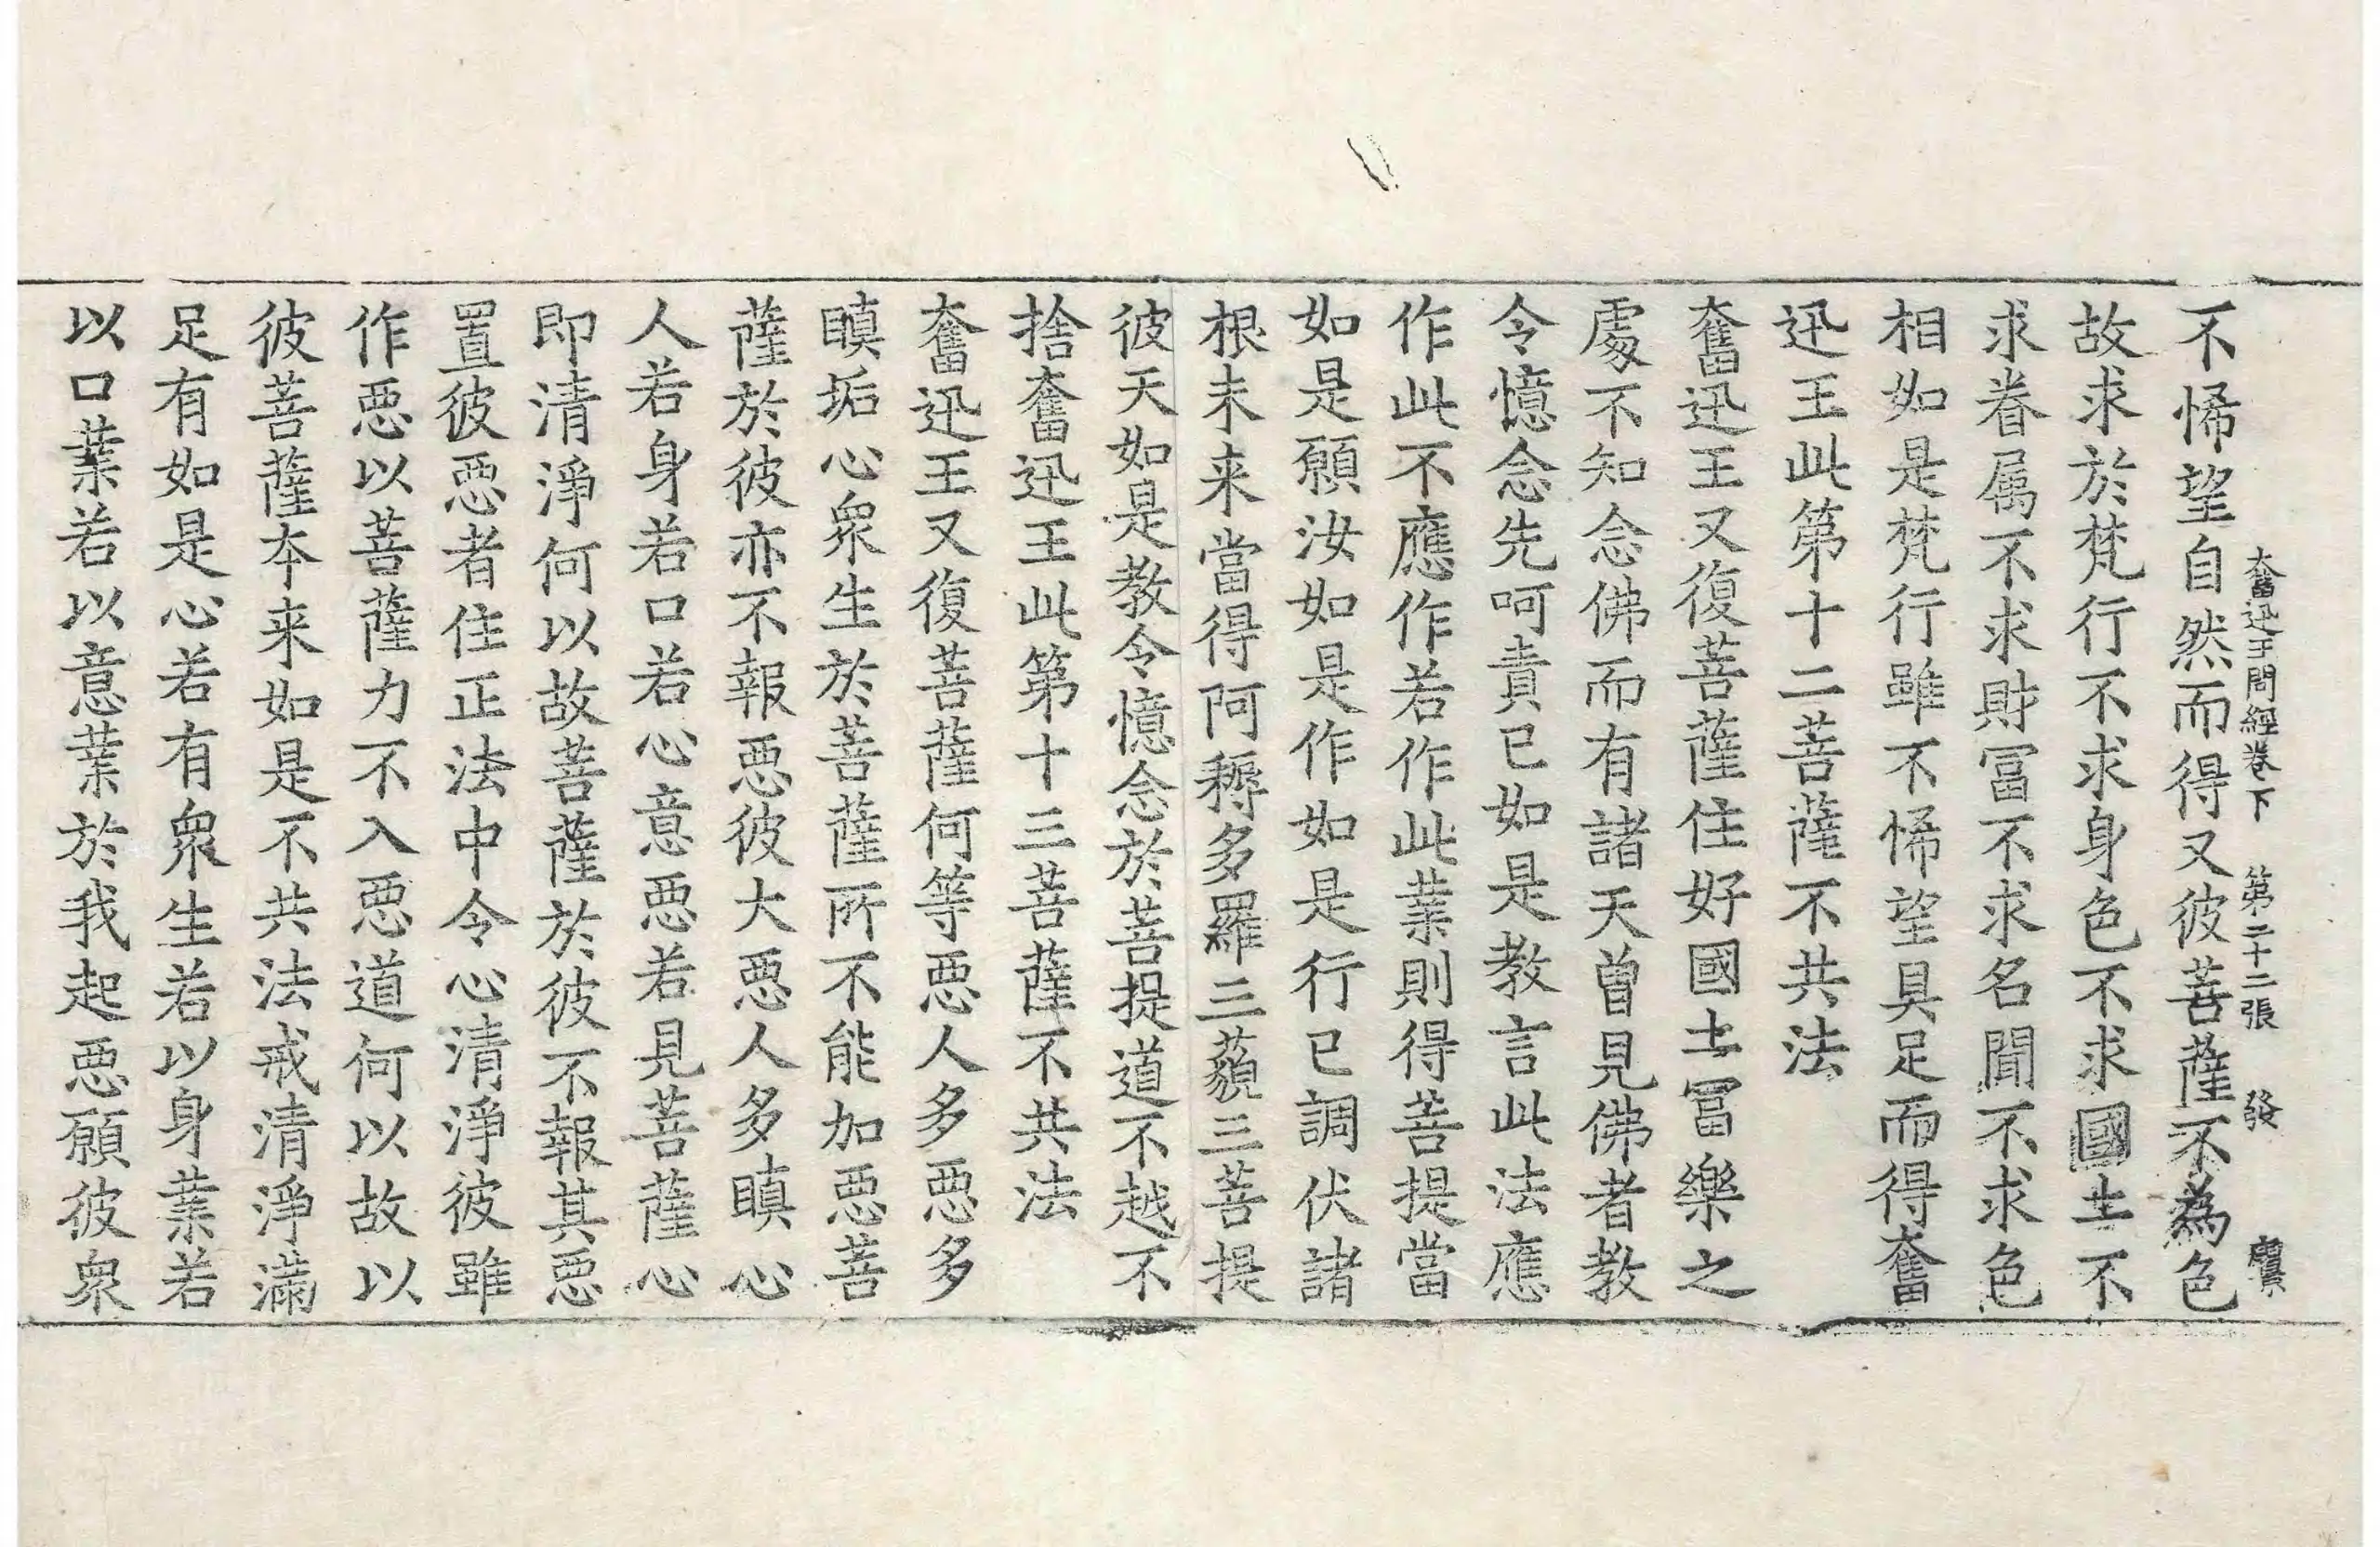 奮迅王問經卷下　第二十二張　發　𢊍
不悕望自然而得又彼菩薩不為色
故求於梵行不求身色不求國土不
求眷属不求財冨不求名聞不求色
相如是梵行雖不悕望具足而得奮
迅王此第十二菩薩不共法
奮迅王又復菩薩住好國土冨樂之
處不知念佛而有諸天曾見佛者教
令憶念先呵責已如是教言此法應
作此不應作若作此業則得菩提當
如是願汝如是作如是行已調伏諸
根未来當得阿耨多羅三藐三菩提
彼天如是教令憶念於菩提道不越不
捨奮迅王此第十三菩薩不共法
奮迅王又復菩薩何等惡人多惡多
瞋垢心衆生於菩薩所不能加惡菩
薩於彼亦不報惡彼大惡人多瞋心
人若身若口若心意惡若見菩薩心
即清淨何以故菩薩於彼不報其惡
置彼惡者住正法中令心清淨彼雖
作惡以菩薩力不入惡道何以故以
彼菩薩本来如是不共法戒清淨滿
足有如是心若有衆生若以身業若
以口業若以意業於我起惡願彼衆